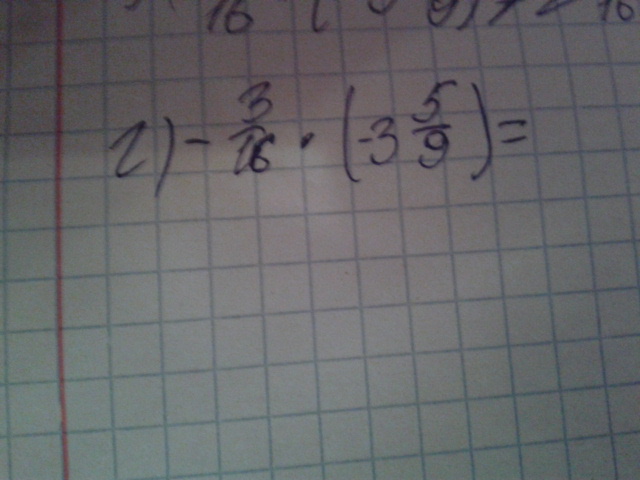 16 ( 9) 16
2) - 3/16 · (-3 5/9) =